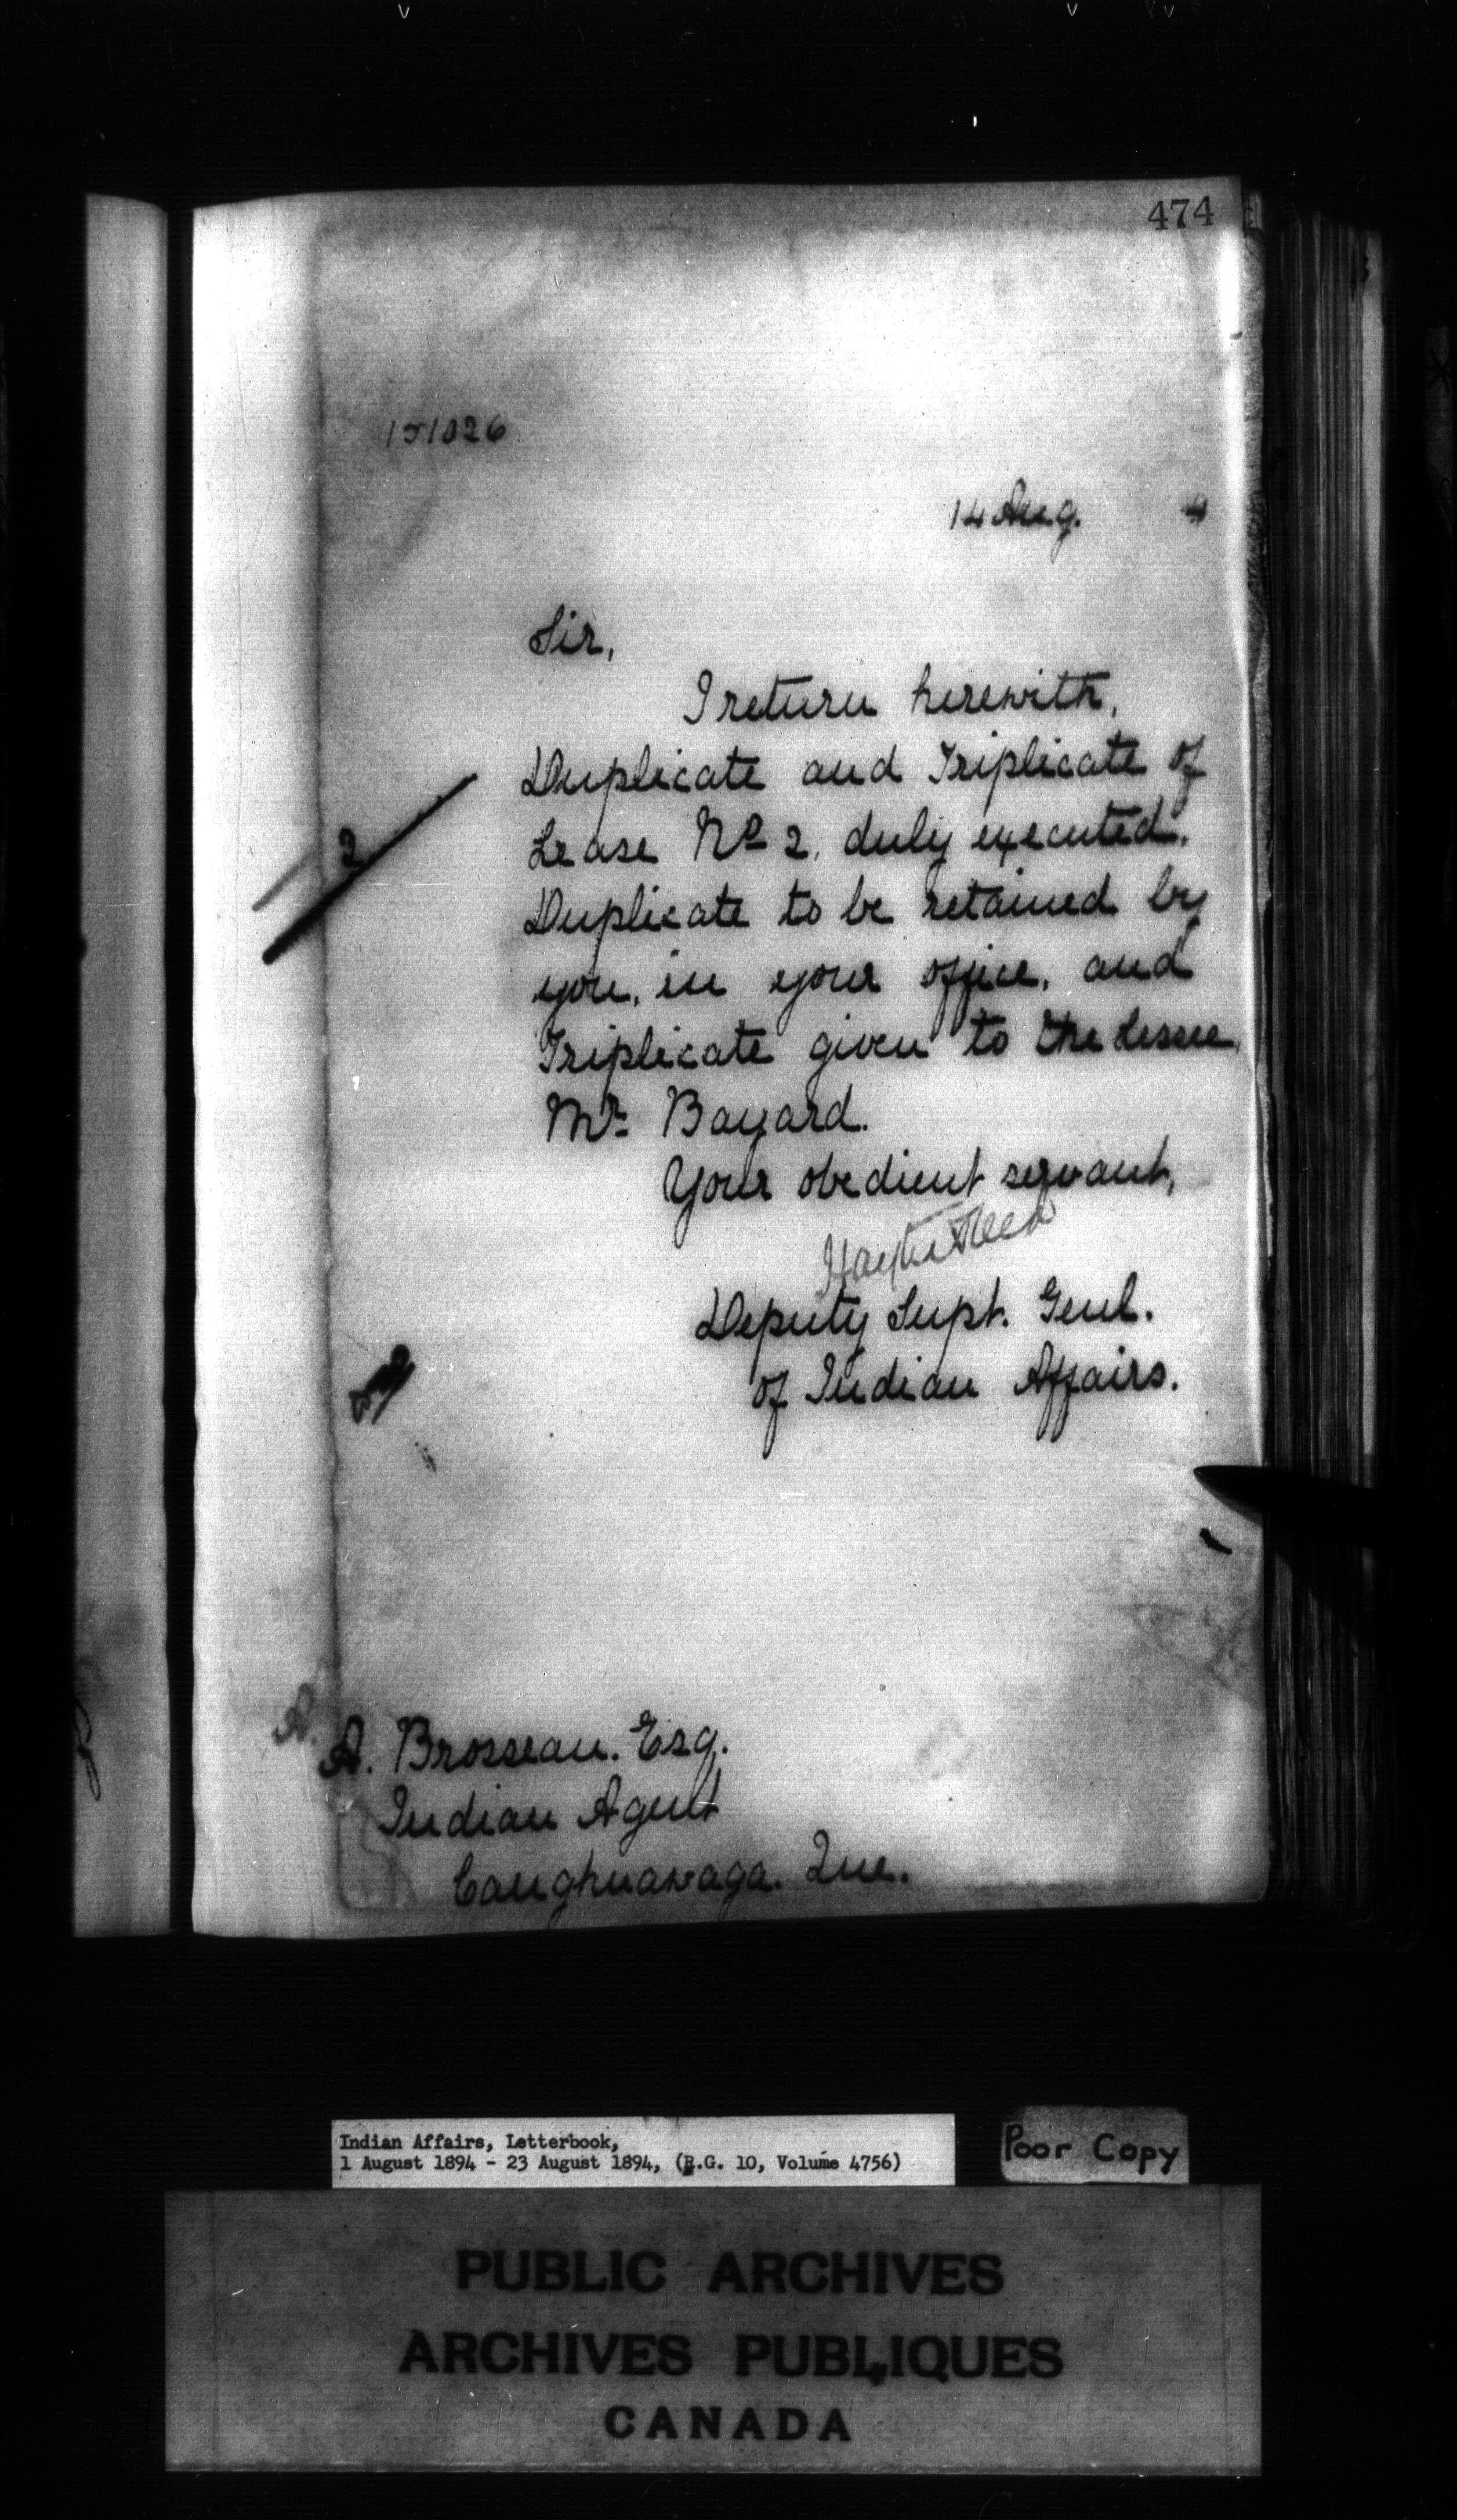 474
151026
14 Aug. 4
Sir,
I return herewith,
Duplicate and Triplicate of
Lease No 2, duly executed.
2
Duplicate to be retained by
you, in your office, and
Triplicate given to the Lessee,
Mr. Bayard.
Your obedient servant,
Hayter Reed
Deputy Supt. Genl.
of Indian Affairs.
A. Brosseau. Esq.
Indian Agent
Caughnawaga. Que.
Indian Affairs, Letterbook,
1 August 1894 - 23 August 1894, (R.G. 10, Volume 4756)
Poor Copy
PUBLIC ARCHIVES
ARCHIVES PUBLIQUES
CANADA